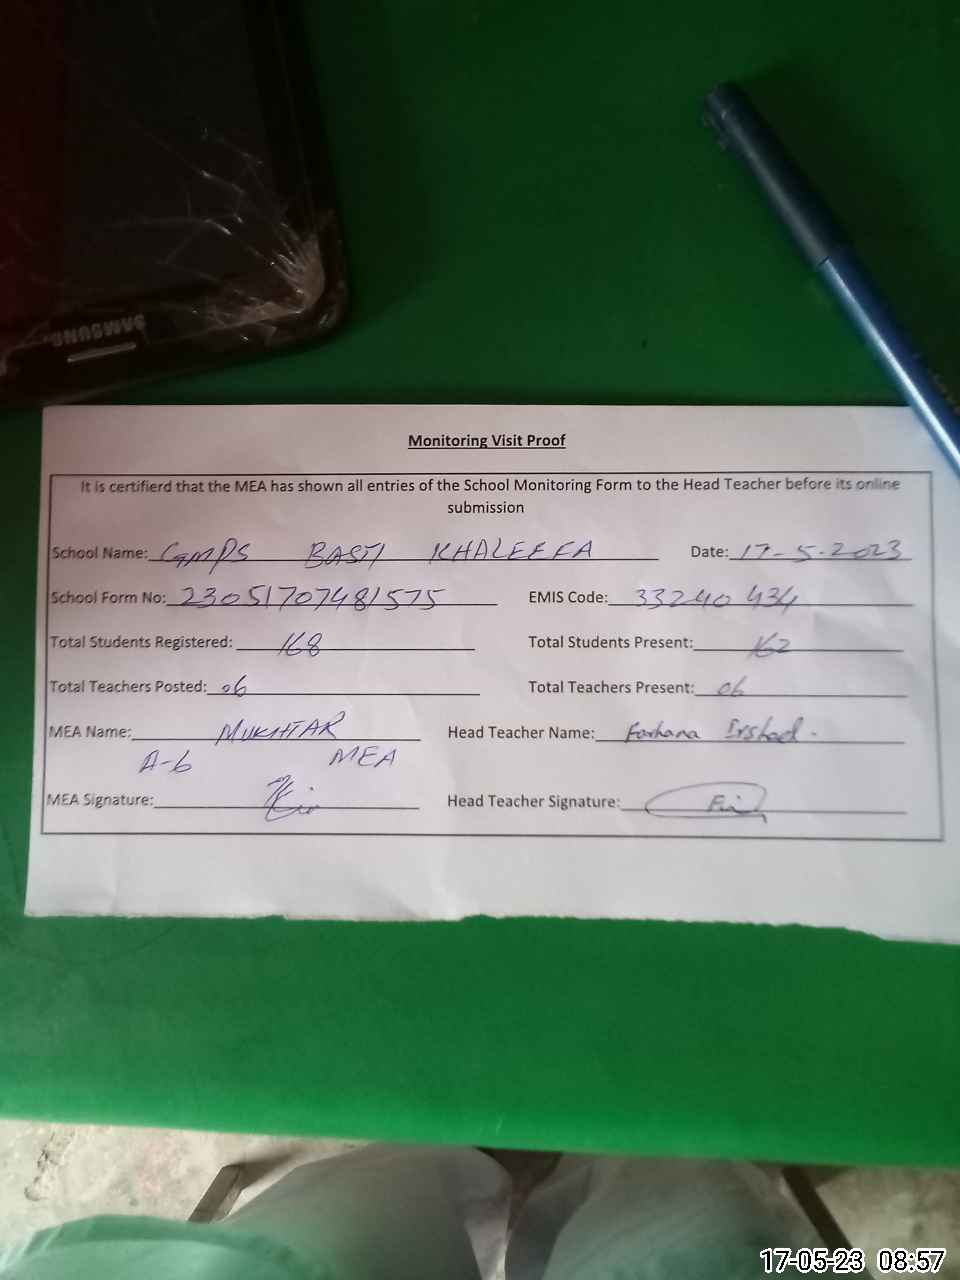 SAMSUNG
Monitoring Visit Proof
It is certifierd that the MEA has shown all entries of the School Monitoring Form to the Head Teacher before its online
submission
School Name: GMPS BASTI KHALEEFA Date: 17-5-2023
School Form No: 23051707481575 EMIS Code: 33240434
Total Students Registered: 168 Total Students Present: 162
Total Teachers Posted: 06 Total Teachers Present: 06
MEA Name: MUKHTAR Head Teacher Name: Farhana Irshad.
A-6 MEA
MEA Signature: Head Teacher Signature:
17-05-23 08:57